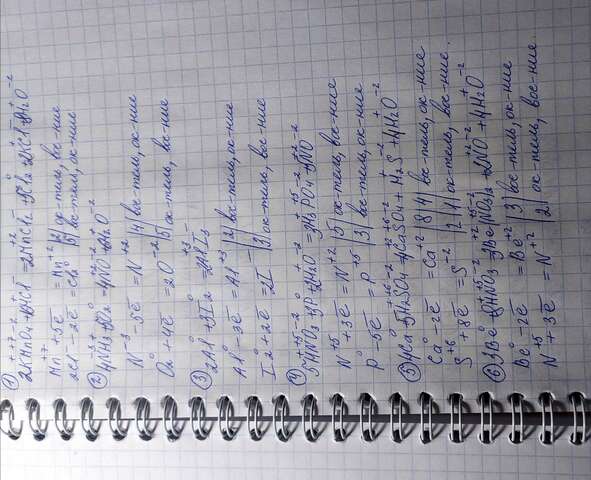 1) 2KMnO4 + 16HCl = 2MnCl2 + 5Cl2 + 2KCl + 8H2O
Mn⁺⁷ + 5e̅ = Mn⁺² |2| ок-тель, вос-ние
2Cl⁻ - 2e̅ = Cl2⁰ |5| вос-тель, ок-ние
2) 4NH3 + 5O2 = 4NO + 6H2O
N⁻³ - 5e̅ = N⁺² |4| вос-тель, ок-ние
O2⁰ + 4e̅ = 2O⁻² |5| ок-тель, вс-ние
3) 2Al + 3I2 = 2AlI3
Al⁰ - 3e̅ = Al⁺³ |2| вос-тель, ок-ние
I2⁰ + 2e̅ = 2I⁻ |3| ок-тель, вос-ние
4) 5HNO3 + 3P + 2H2O = 3H3PO4 + 5NO
N⁺⁵ + 3e̅ = N⁺² |5| ок-тель, вос-ние
P⁰ - 5e̅ = P⁺⁵ |3| вос-тель, ок-ние
5) 4Ca + 5H2SO4 = 4CaSO4 + H2S + 4H2O
Ca⁰ - 2e̅ = Ca⁺² |8|4| вос-тель, ок-ние
S⁺⁶ + 8e̅ = S⁻² |2|1| ок-тель, вос-ние.
6) 3Be + 8HNO3 = 3Be(NO3)2 + 2NO + 4H2O
Be⁰ - 2e̅ = Be⁺² |3| вос-тель, ок-ние
N⁺⁵ + 3e̅ = N⁺² |2| ок-тель, вос-ние.